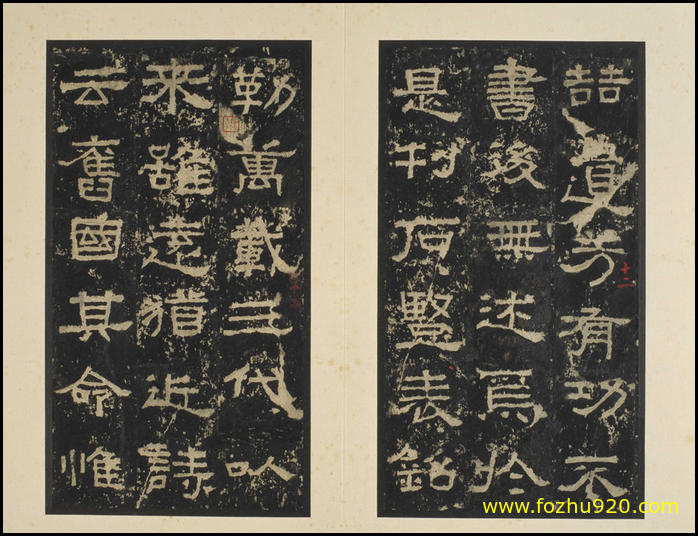 喆遺芳有功不
書後無述焉於
是刊石竪表銘
勒萬載三代以
来雖遠猶近詩
云舊國其命惟
十二
www.fozhu920.com